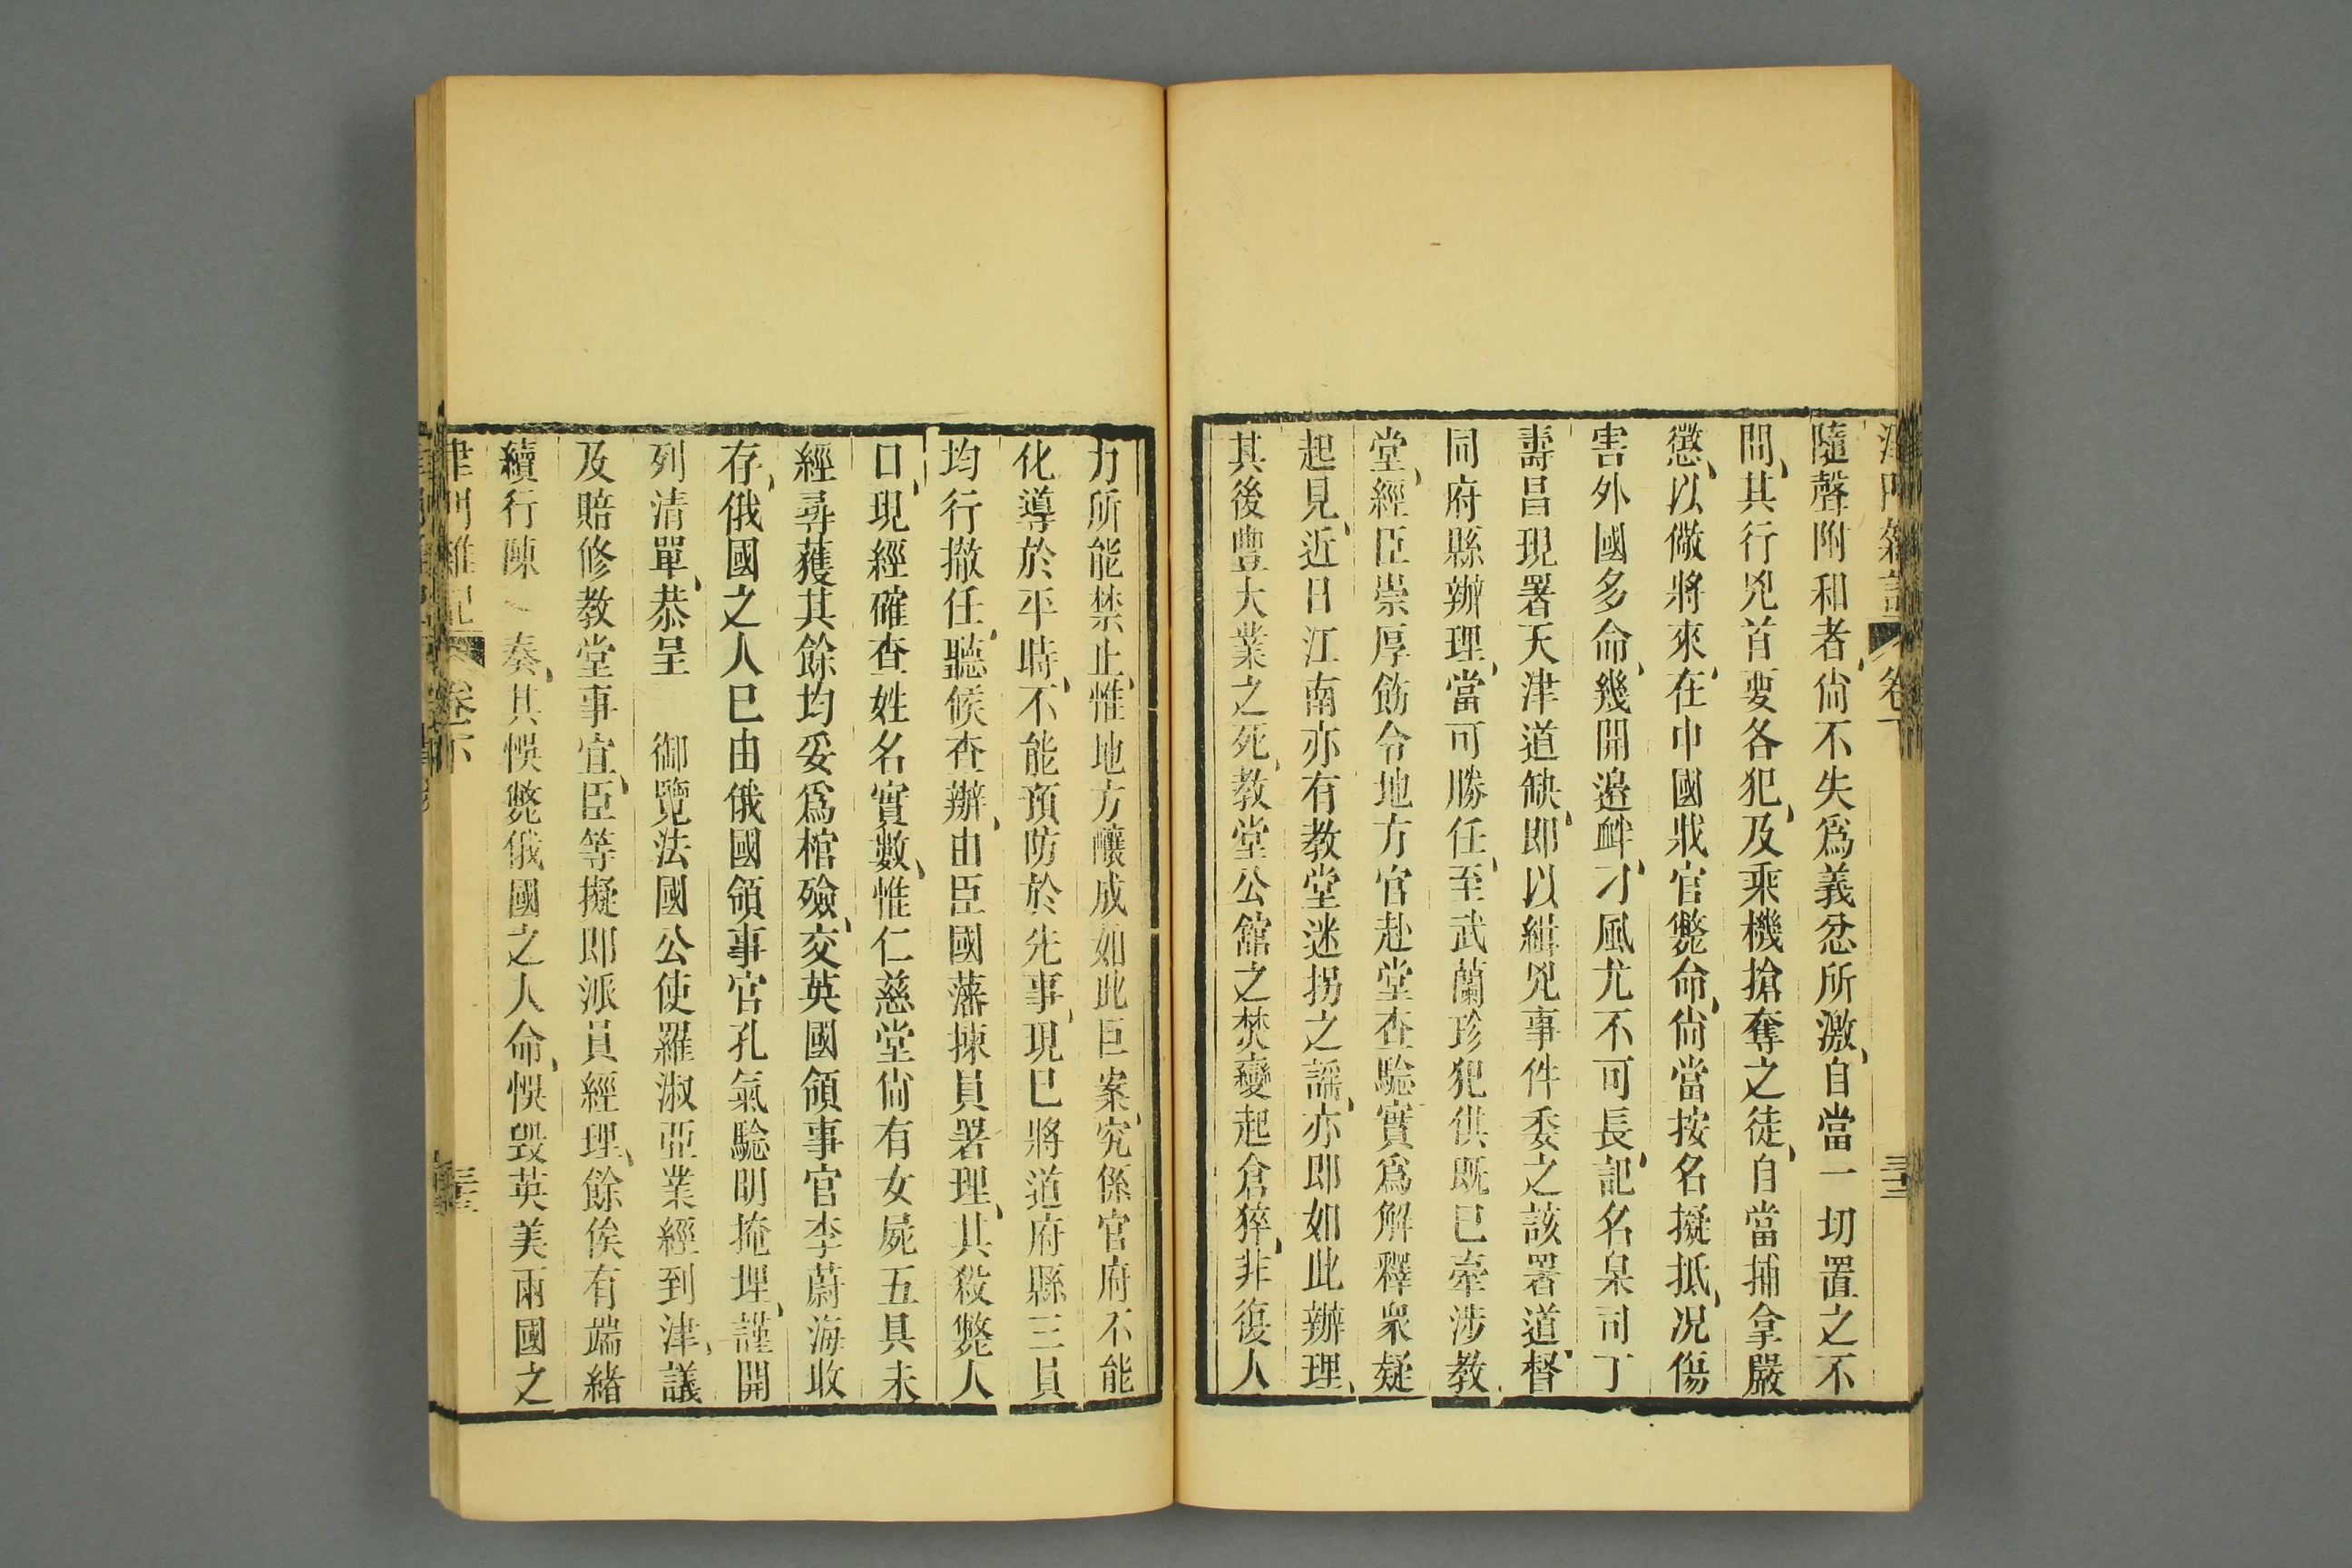 隨聲附和者、尙不失爲義忿所激、自當一切置之不
問、其行兇首要各犯、及乘機搶奪之徒、自當捕拿嚴
懲、以儆將來、在中國戕官斃命、尙當按名擬抵、况傷
害外國多命、幾開邊衅、刁風尤不可長、記名臬司丁
壽昌現署天津道缺、即以緝兇事件委之該署道、督
同府縣辦理、當可勝任、至武蘭珍犯供既已牽涉教
堂、經臣崇厚飭令地方官赴堂查驗實爲解釋衆疑
起見、近日江南亦有教堂迷拐之謡、亦即如此辦理、
其後豐大業之死、教堂公館之焚變起倉猝、非復人
力所能禁止、惟地方釀成如此巨案、究係官府不能
化導於平時、不能預防於先事、現已將道府縣三員
均行撤任、聽候查辦、由臣國藩揀員署理、其殺斃人
口、現經確查姓名實數、惟仁慈堂尙有女屍五具未
經尋獲其餘均妥爲棺殮、交英國領事官李蔚海收
存、俄國之人已由俄國領事官孔氣驗明掩埋、謹開
列清單、恭呈　御覽法國公使羅淑亞業經到津、議
及賠修教堂事宜、臣等擬即派員經理、餘俟有端緒
續行陳　奏、其悞斃俄國之人命、悞毁英美兩國之
津門雜記　卷下　三十三